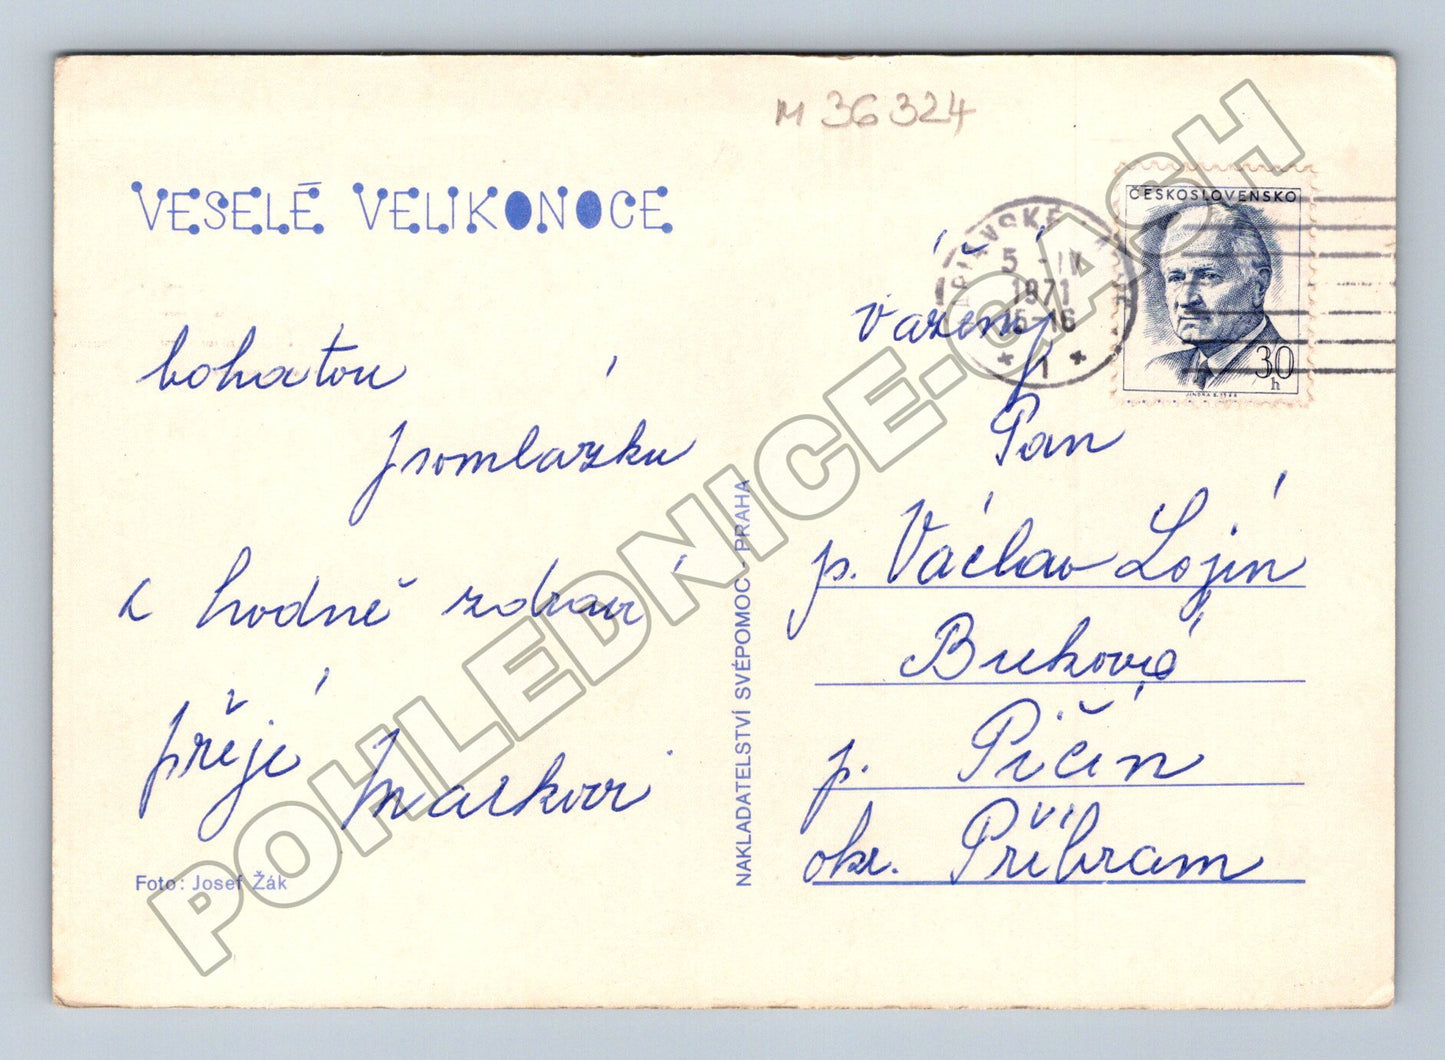 M 36324
VESELÉ VELIKONOCE
bohatou
pomlázku
a hodně zdraví
přeje Markovi
Foto: Josef Žák
NAKLADATELSTVÍ SVÉPOMOC - PRAHA
ČESKOSLOVENSKO
30
h
JINDRA S. 1968
5 -IV
1971
15-16
* 1 *
Vážený
Pan
p. Václav Lojín
Buková
p. Pičín
okr. Příbram
POHLEDNICE-CASH